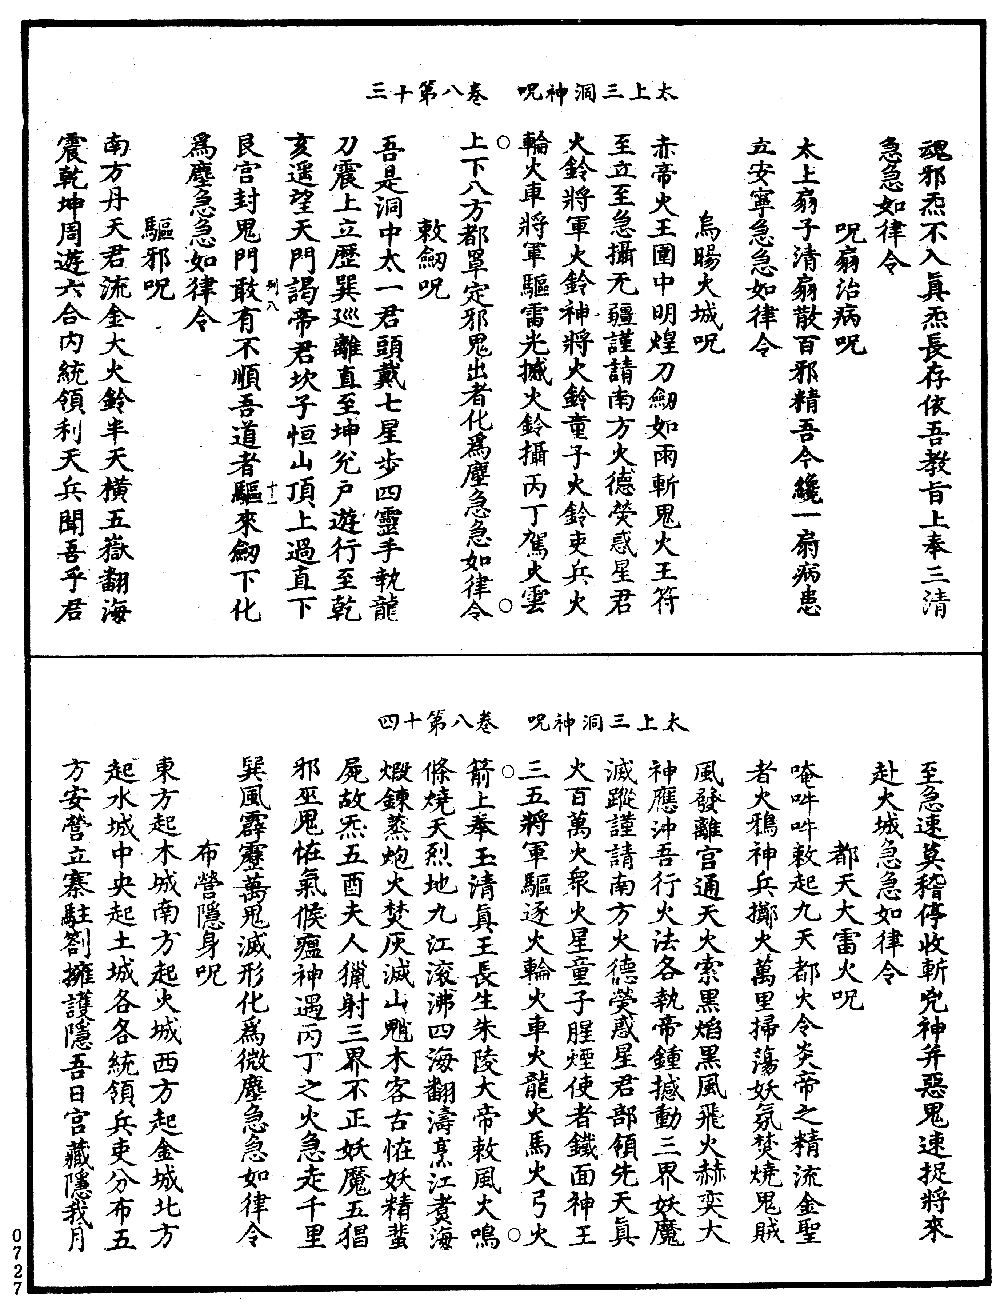 太上三洞神呪　卷八第十三
魂邪炁不入眞炁長存依吾教旨上奉三清
急急如律令
呪扇治病呪
太上扇子清扇散百邪精吾今纔一扇病患
立安寧急急如律令
烏暘火城呪
赤帝火王圍中明煌刀劒如雨斬鬼火王符
至立至急攝无疆謹請南方火德熒惑星君
火鈴將軍火鈴神將火鈴童子火鈴吏兵火
輪火車將軍驅雷光撼火鈴攝丙丁駕火雲
上下八方都罩定邪鬼出者化爲塵急急如律令
敕劒呪
吾是洞中太一君頭戴七星步四靈手執龍
刀震上立歷巽巡離直至坤兊戶遊行至乾
亥遥望天門謁帝君坎子恒山頂上過直下
列八　十一
艮宫封鬼門敢有不順吾道者驅來劒下化
爲塵急急如律令
驅邪呪
南方丹天君流金大火鈴半天橫五嶽翻海
震乾坤周遊六合内統領利天兵聞吾乎君
太上三洞神呪　卷八第十四
至急速莫稽停收斬兇神并惡鬼速捉將來
赴火城急急如律令
都天大雷火呪
唵吽吽敕起九天都火令炎帝之精流金聖
者火鴉神兵擲火萬里掃蕩妖氛焚燒鬼賊
風發離宫通天火索黑焰黑風飛火赫奕大
神應沖吾行火法各執帝鍾撼動三界妖魔
滅蹤謹請南方火德熒惑星君部領先天眞
火百萬火衆火星童子腥煙使者鐵面神王
三五將軍驅逐火輪火車火龍火馬火弓火
箭上奉玉清眞王長生朱陵大帝敕風火鳴
條燒天烈地九江滚沸四海翻濤烹江煮海
煅鍊蒸炮火焚灰滅山魈木客古恠妖精蜚
屍故炁五酉夫人獵射三界不正妖魔五猖
邪巫鬼恠氣候瘟神遇丙丁之火急走千里
巽風霹靂萬鬼滅形化爲微塵急急如律令
布營隱身呪
東方起木城南方起火城西方起金城北方
起水城中央起土城各各統領兵吏分布五
方安營立寨駐劄擁護隱吾日宫藏隱我月
0727